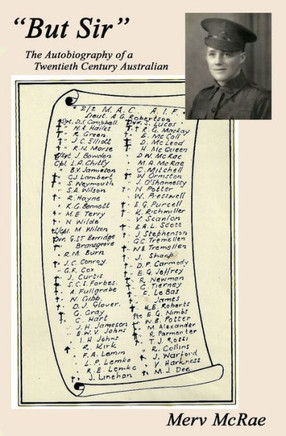 "But Sir"
The Autobiography of a
Twentieth Century Australian
M.A.C. A.I.F.
Lieut. A.G. Robertson
Sgt. D.J. Campbell
N.R. Hailes
R. Green
J.C. Elliott
R.N. Morse
J. Bowden
Cpl. L.A. Chitty
B.V. Jameson
C.J. Lambert
S. Weymouth
S.A. Wilson
R. Hayne
K.G. Bennett
M.E. Terry
N. Wilde
M. Wilson
R.M. Burn
J.C. Conroy
G.F. Cox
J. Curtis
S.C.J. Forbes
A. Fullgrabe
N. Gibb
D.J. Glover
G. Gray
C. Hart
J.H. Jameson
E.W.V. Johns
I.H. Johns
R. Kirk
F.A. Lemin
L.P. Lemke
R.E. Lemke
J. Linehan
S. Lucas
R.G. Mackay
E. McColl
D. McLeod
H. McQueen
D.W. McRae
M.A. McRae
C. Mitchell
W. Ormston
J. O'Shannessy
N. Potter
W. Presswell
E.G. Purcell
K. Richmiller
V. Scanlon
E.A.L. Scott
J. Stephenson
G.C. Tremellen
W.B. Tremellen
J. Sharp
D.P. Carmody
E.G. Jeffrey
R. Newman
C. Tierney
C. Le Bas
James
H.E. Roberts
E.G. Nimbs
W.B. Potter
M. Alexander
R. Parmenter
T.J. Rossi
R. Collins
J. Warford
V. Harkness
M.J. Dee
Merv McRae